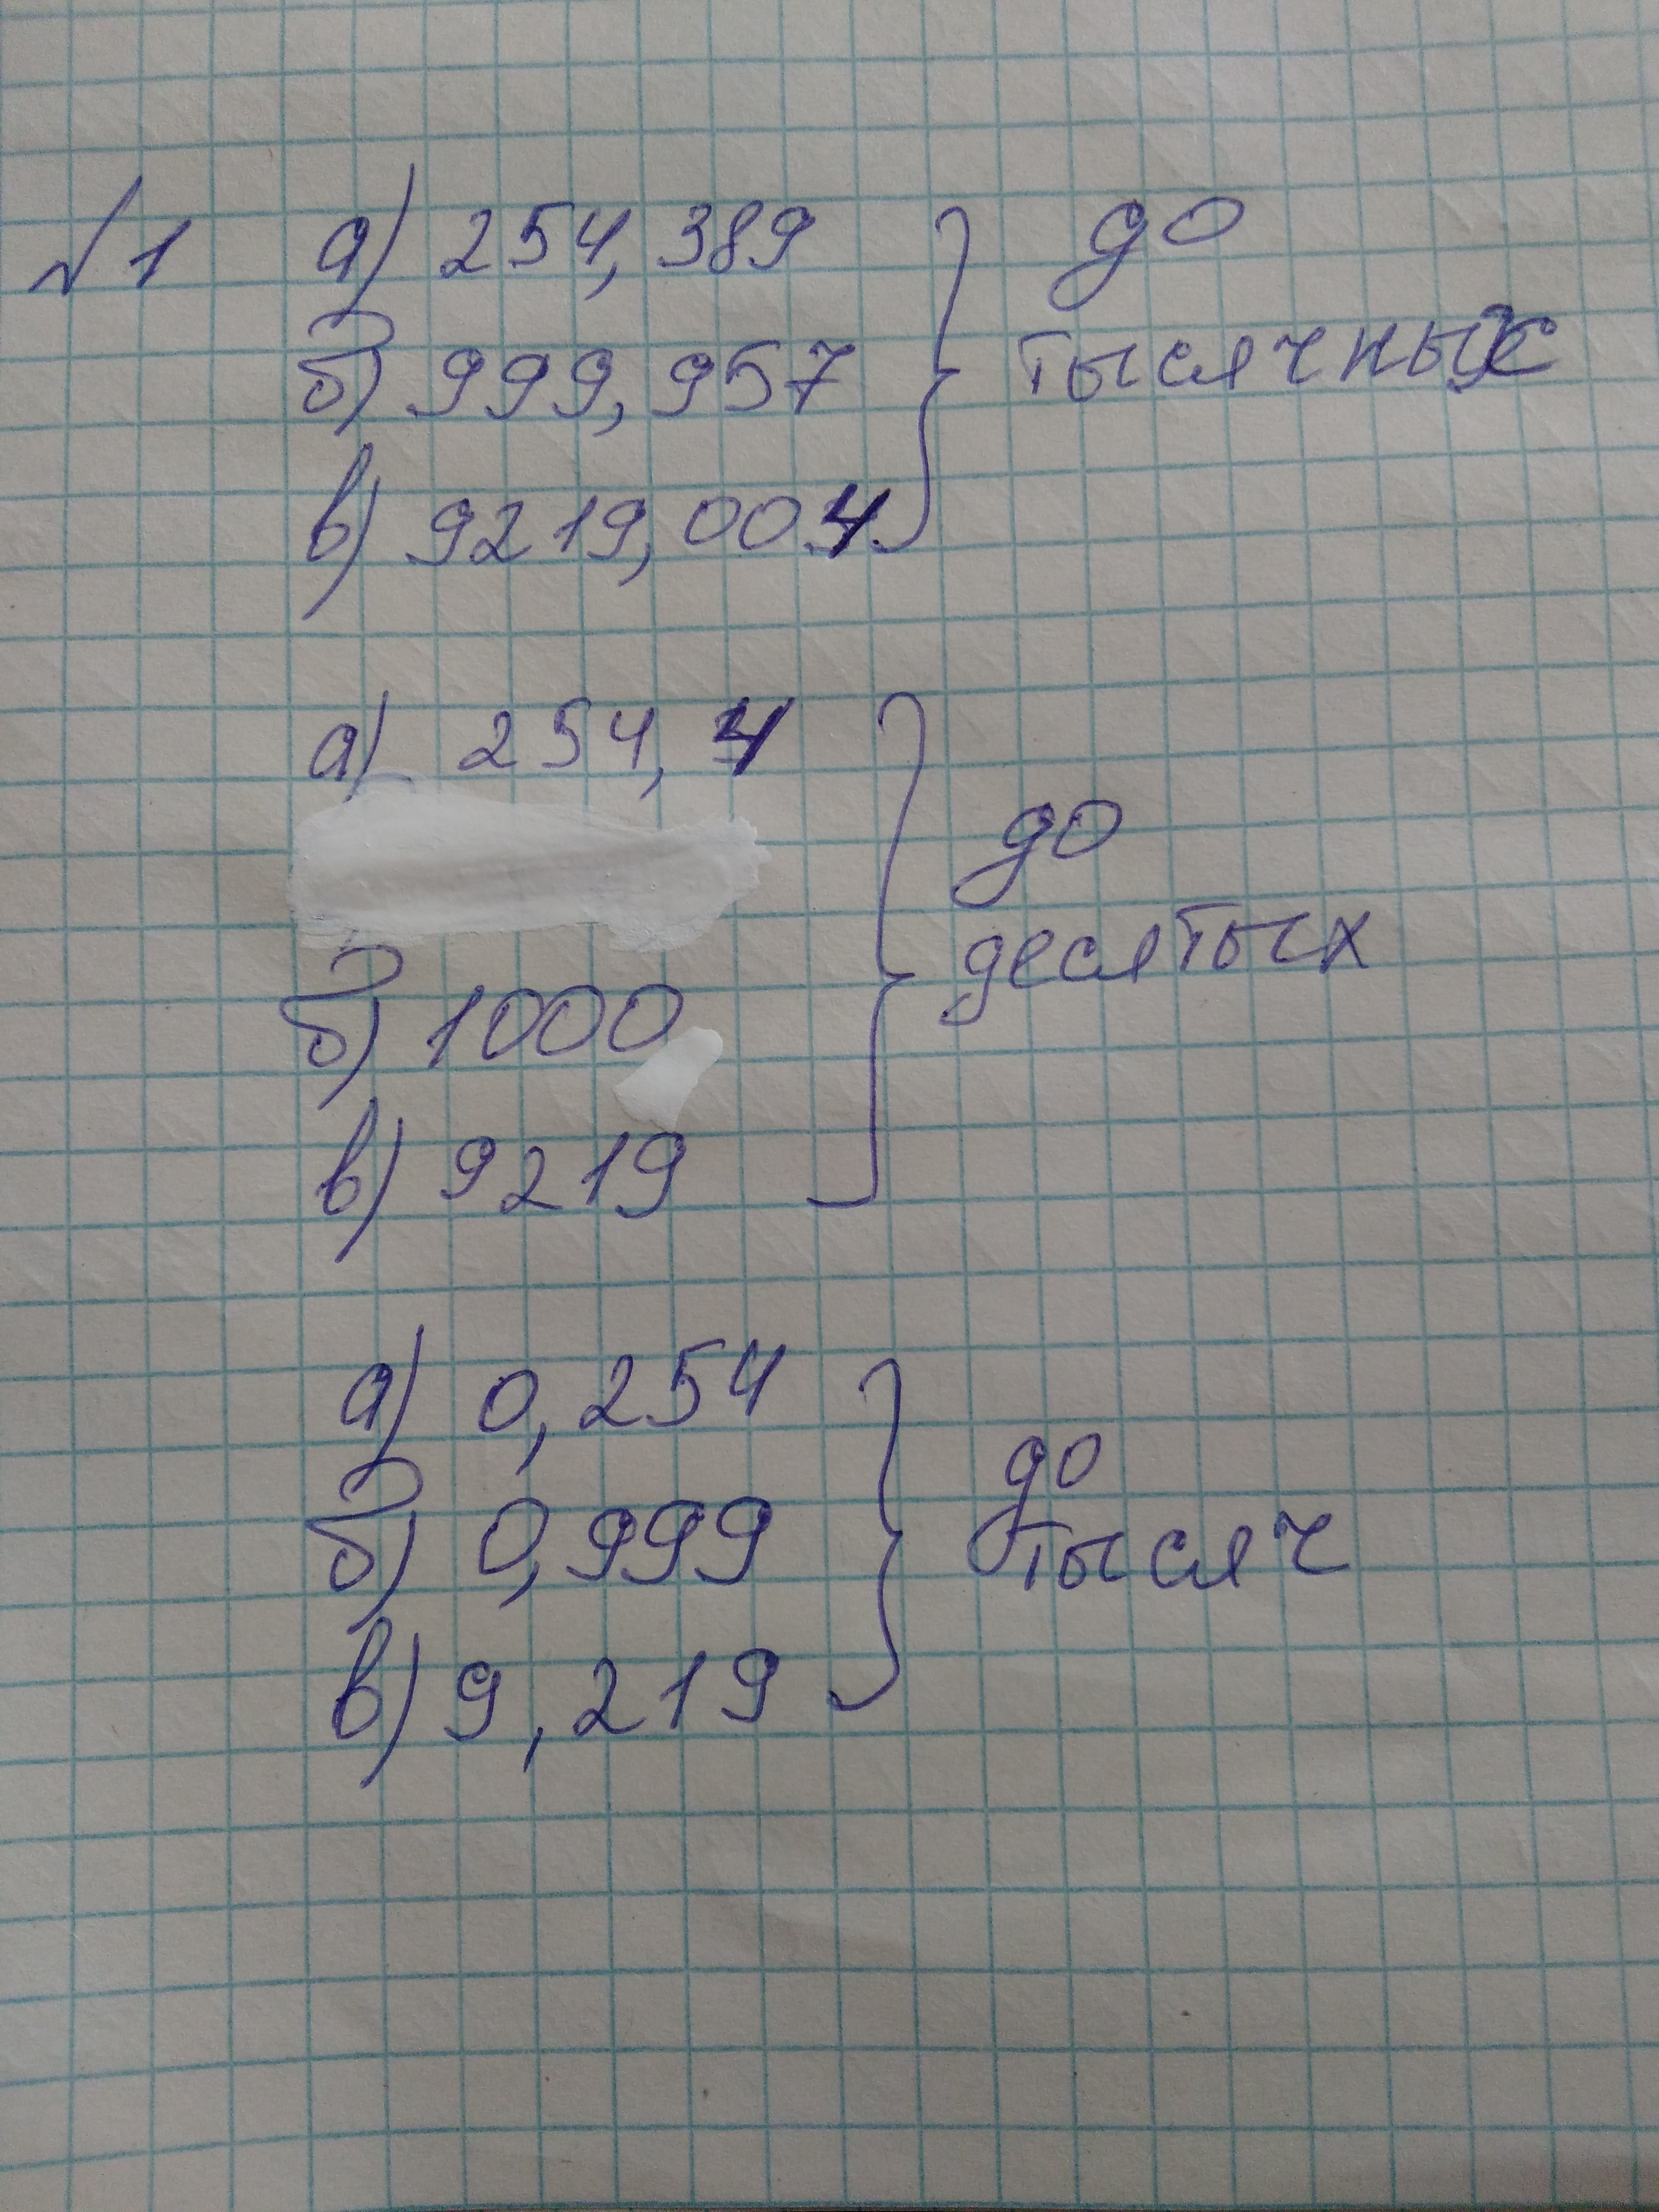 №1 а) 254,389 } до
б) 999,957 тысячных
в) 9219,004
а) 254,4 } до
десятых
б) 1000
в) 9219
а) 0,254 } до
б) 0,999 тысяч
в) 9,219